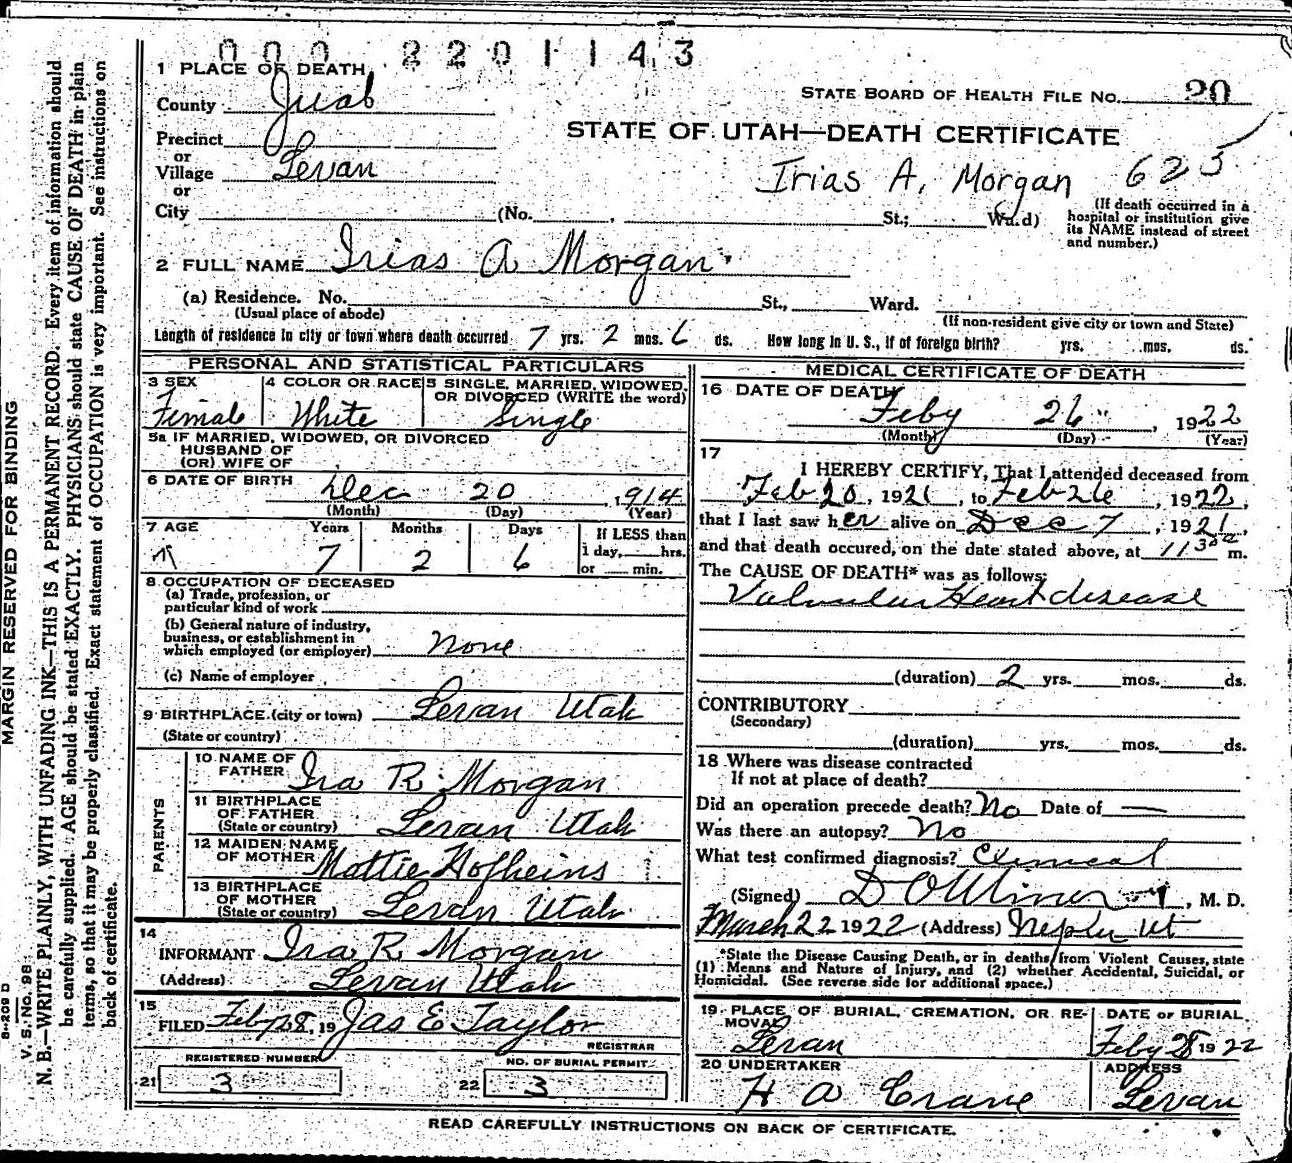 000 2201143
1 PLACE OF DEATH
County Juab
STATE BOARD OF HEALTH FILE NO. 20
Precinct
or
Village Levan
or
City (No. , St.; Ward)
STATE OF UTAH—DEATH CERTIFICATE
Irias A. Morgan 625
(If death occurred in a
hospital or institution give
its NAME instead of street
and number.)
2 FULL NAME Irias A Morgan
(a) Residence. No. St., Ward.
(Usual place of abode)
(If non-resident give city or town and State)
Length of residence in city or town where death occurred 7 yrs. 2 mos. 6 ds. How long in U. S., if of foreign birth? yrs. mos. ds.
PERSONAL AND STATISTICAL PARTICULARS
3 SEX Female
4 COLOR OR RACE White
5 SINGLE, MARRIED, WIDOWED,
OR DIVORCED (WRITE the word)
Single
5a IF MARRIED, WIDOWED, OR DIVORCED
HUSBAND OF
(OR) WIFE OF
6 DATE OF BIRTH Dec 20 , 1914
(Month) (Day) (Year)
7 AGE Years Months Days If LESS than
1 day, hrs.
or min.
7 2 6
8 OCCUPATION OF DECEASED
(a) Trade, profession, or
particular kind of work
(b) General nature of industry,
business, or establishment in
which employed (or employer) none
(c) Name of employer
9 BIRTHPLACE (city or town) Levan Utah
(State or country)
PARENTS
10 NAME OF
FATHER Ira R. Morgan
11 BIRTHPLACE
OF FATHER
(State or country) Levan Utah
12 MAIDEN NAME
OF MOTHER Mattie Hofheins
13 BIRTHPLACE
OF MOTHER
(State or country) Levan Utah
14
INFORMANT Ira R. Morgan
(Address) Levan Utah
15
FILED Feb 28, 19 Jas E Taylor
REGISTRAR
REGISTERED NUMBER
21 3
NO. OF BURIAL PERMIT
22 3
MEDICAL CERTIFICATE OF DEATH
16 DATE OF DEATH
Feby 26 , 1922
(Month) (Day) (Year)
17
I HEREBY CERTIFY, That I attended deceased from
Feb 20, 1921, to Feb 26, 1922,
that I last saw her alive on Dec 7, 1921,
and that death occured, on the date stated above, at 11 30 a m.
The CAUSE OF DEATH* was as follows:
Valvular Heart disease
(duration) 2 yrs. mos. ds.
CONTRIBUTORY
(Secondary)
(duration) yrs. mos. ds.
18 Where was disease contracted
If not at place of death?
Did an operation precede death? No Date of —
Was there an autopsy? No
What test confirmed diagnosis? Clinical
(Signed) , M. D.
March 22 1922 (Address) Nephi Ut
*State the Disease Causing Death, or in deaths from Violent Causes, state
(1) Means and Nature of Injury, and (2) whether Accidental, Suicidal, or
Homicidal. (See reverse side for additional space.)
19 PLACE OF BURIAL, CREMATION, OR RE-
MOVAL
Levan
DATE OF BURIAL
Feby 28 1922
20 UNDERTAKER
H A Crane
ADDRESS
Levan
READ CAREFULLY INSTRUCTIONS ON BACK OF CERTIFICATE.
MARGIN RESERVED FOR BINDING
S-209 D
V. S. No. 98
N. B.—WRITE PLAINLY, WITH UNFADING INK—THIS IS A PERMANENT RECORD. Every item of information should
be carefully supplied. AGE should be stated EXACTLY. PHYSICIANS should state CAUSE OF DEATH in plain
terms, so that it may be properly classified. Exact statement of OCCUPATION is very important. See instructions on
back of certificate.